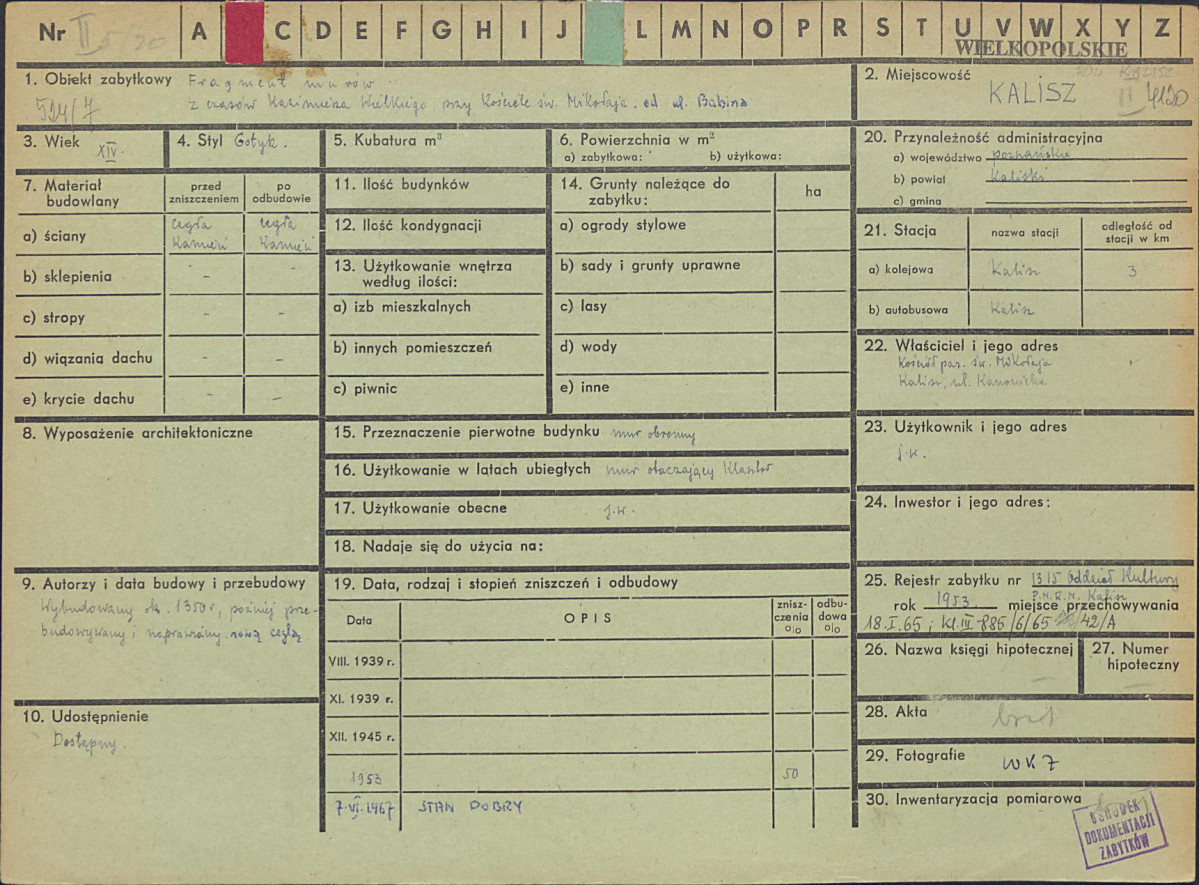 Nr II 5/20 A C D E F G H I J L M N O P R S T U V W X Y Z
WIELKOPOLSKIE
1. Obiekt zabytkowy Fragment murów
z czasów Kazimierza Wielkiego przy Kościele św. Mikołaja. od ul. Babina
524/7
2. Miejscowość
KALISZ
3. Wiek XIV.
4. Styl Gotyk.
5. Kubatura m³
6. Powierzchnia w m²
a) zabytkowa: b) użytkowa:
20. Przynależność administracyjna
a) województwo poznańskie
b) powiat Kaliski
c) gmina
7. Materiał budowlany
przed zniszczeniem
po odbudowie
a) ściany cegła Kamień cegła Kamień
b) sklepienia - -
c) stropy - -
d) wiązania dachu - -
e) krycie dachu - -
11. Ilość budynków
12. Ilość kondygnacji
13. Użytkowanie wnętrza
według ilości:
a) izb mieszkalnych
b) innych pomieszczeń
c) piwnic
14. Grunty należące do
zabytku:
ha
a) ogrody stylowe
b) sady i grunty uprawne
c) lasy
d) wody
e) inne
21. Stacja
nazwa stacji
odległość od
stacji w km
a) kolejowa Kalisz 3
b) autobusowa Kalisz
22. Właściciel i jego adres
Kościół par. św. Mikołaja
Kalisz, ul. Kanonicka
8. Wyposażenie architektoniczne
15. Przeznaczenie pierwotne budynku mur obronny
16. Użytkowanie w latach ubiegłych mur otaczający Klasztor
17. Użytkowanie obecne j.w.
18. Nadaje się do użycia na:
23. Użytkownik i jego adres
j.w.
24. Inwestor i jego adres:
9. Autorzy i data budowy i przebudowy
Wybudowany ok. 1350 r, później prze-
budowywany i naprawiany nową cegłą
19. Data, rodzaj i stopień zniszczeń i odbudowy
Data
OPIS
znisz-
czenia
o/o
odbu-
dowa
o/o
VIII. 1939 r.
XI. 1939 r.
XII. 1945 r.
1953 50
7.VI.1967 STAN DOBRY
25. Rejestr zabytku nr 1315 Oddział Kultury
P.M.R.N. Kalisz
rok 1953. miejsce przechowywania
18.I.65; kl.IV-885/6/65 /42/A
26. Nazwa księgi hipotecznej
27. Numer
hipoteczny
10. Udostępnienie
Dostępny.
28. Akta
29. Fotografie WKZ
30. Inwentaryzacja pomiarowa
OŚRODEK
DOKUMENTACJI
ZABYTKÓW